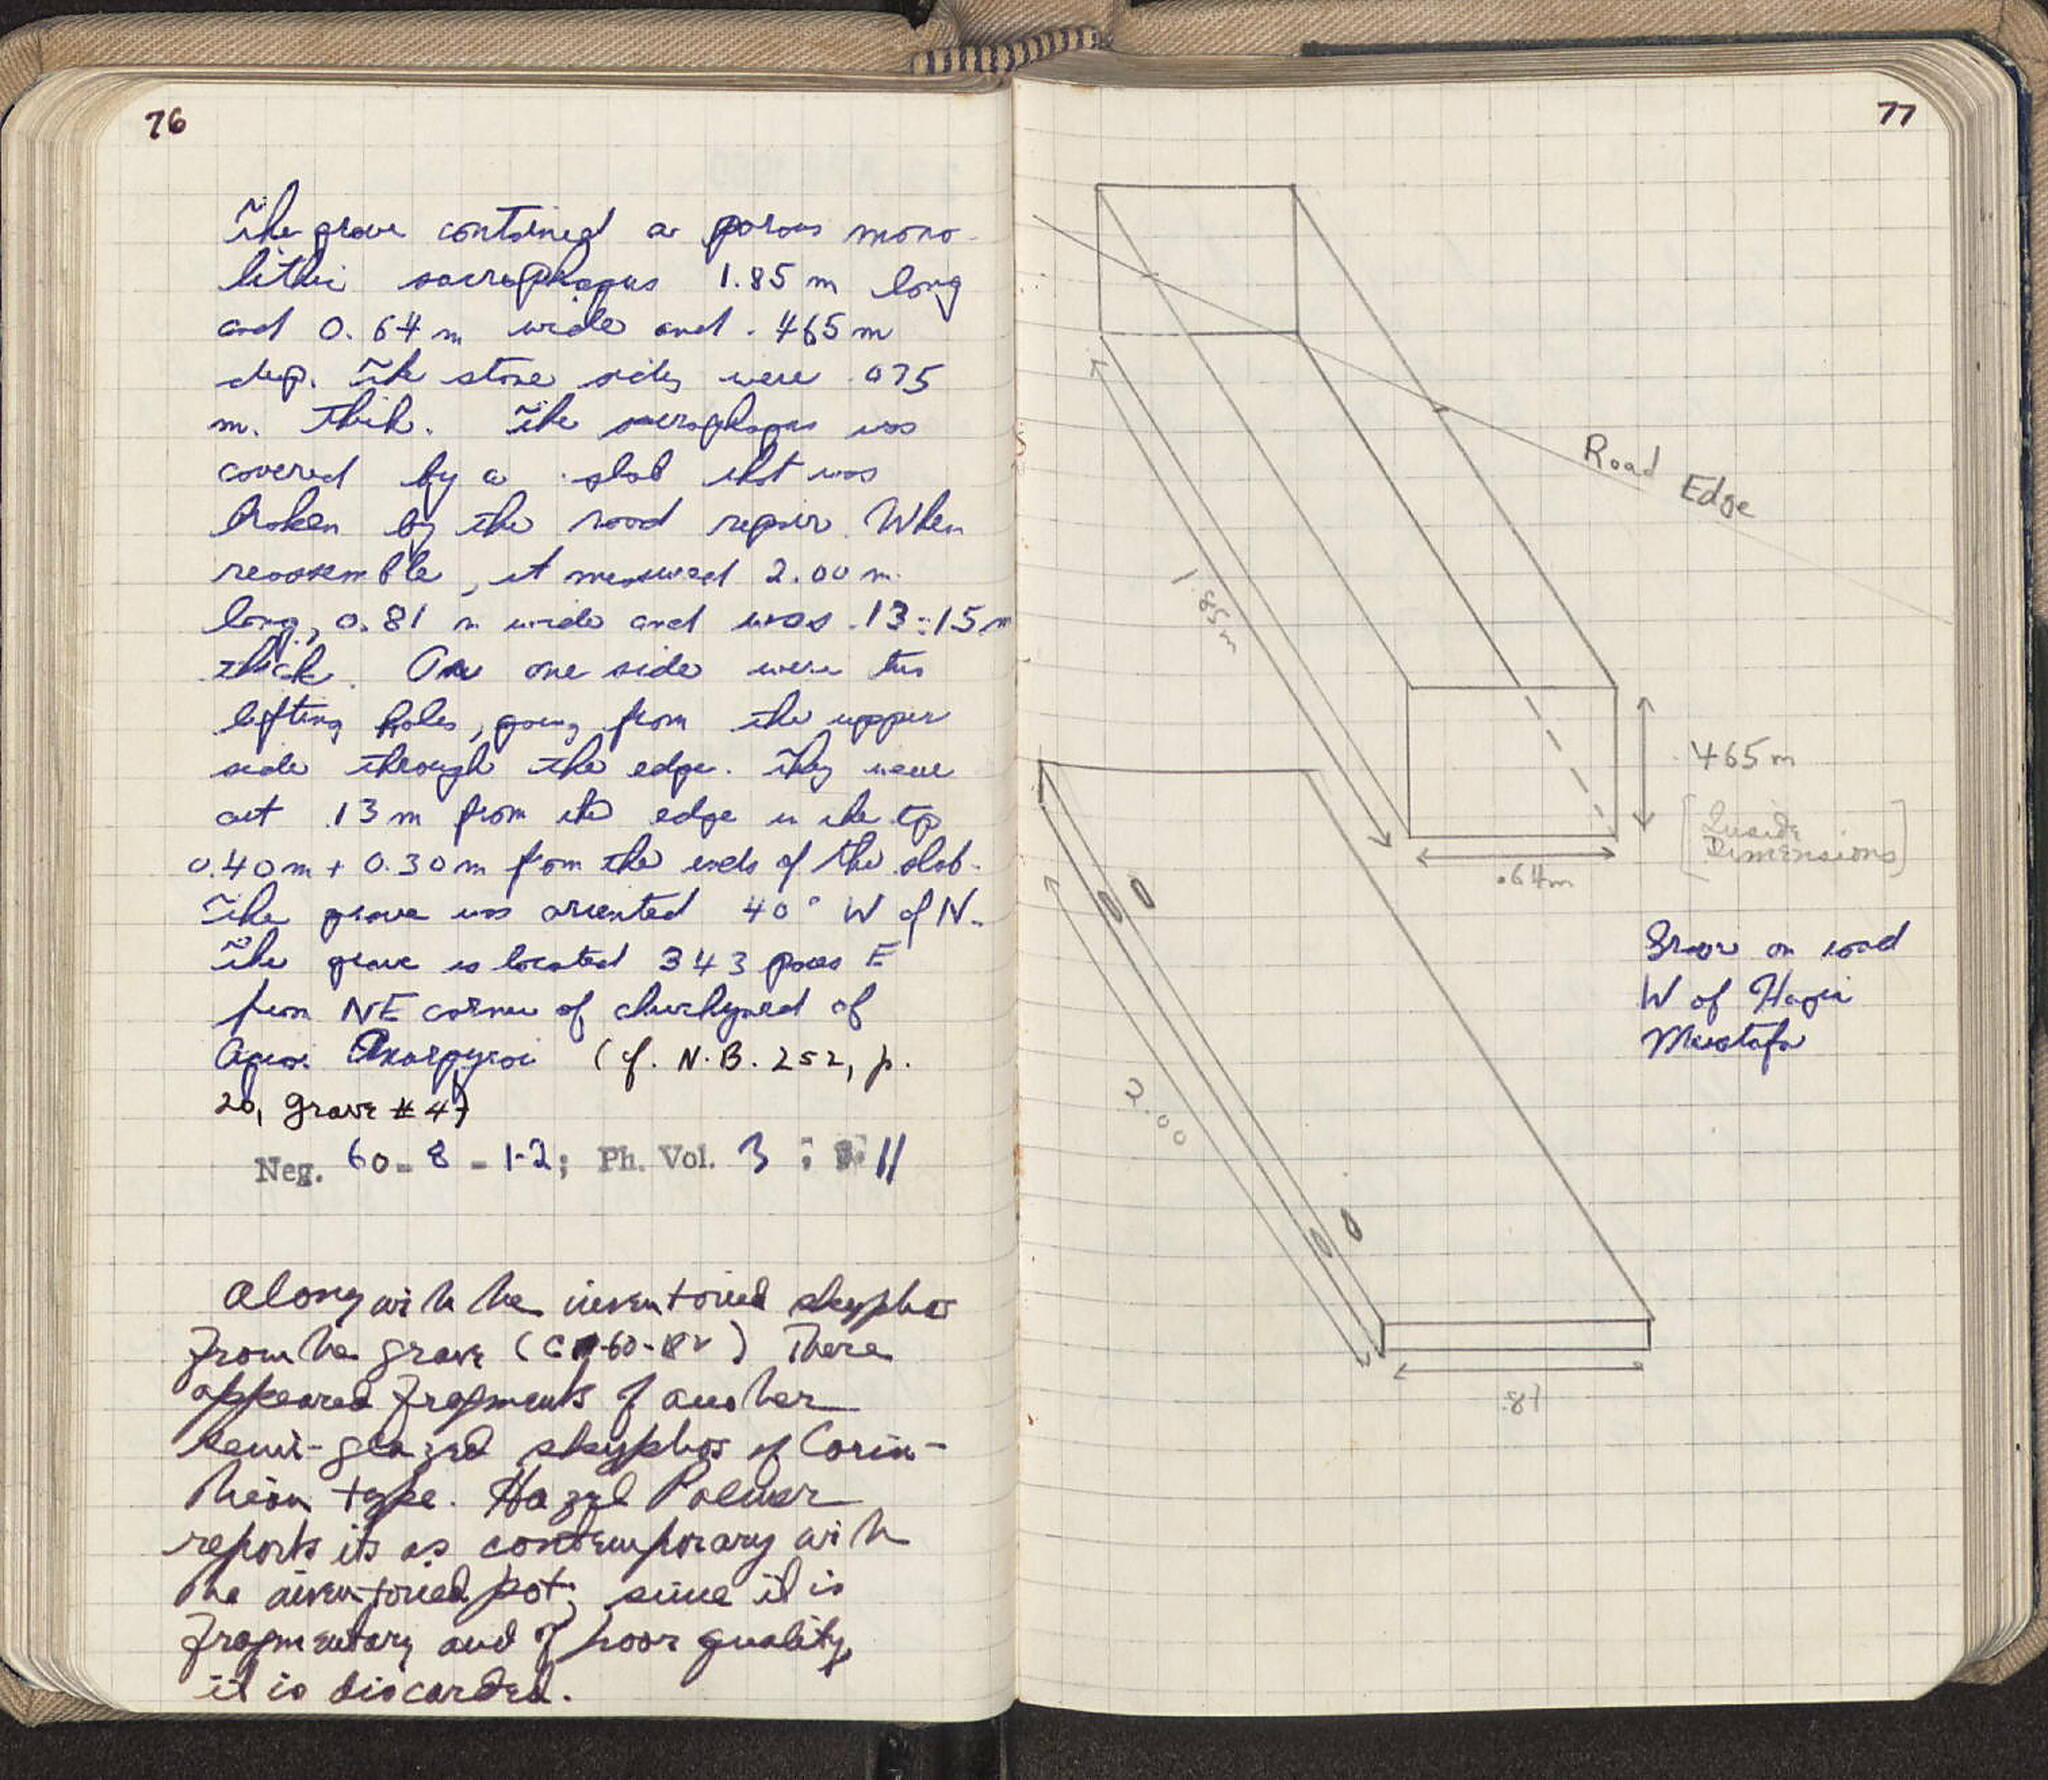 76
The grave contained a poros mono-
lithic sacrophagus 1.85 m long
and 0.64 m wide and .465 m
deep. The stone sides were .075
m. thick. The sacrophagus was
covered by a slab that was
broken by the road repair. When
reassemble, it measured 2.00 m.
long, 0.81 m wide and was .13-.15 m
thick. On one side were two
lifting holes, going from the upper
side through the edge. They were
cut .13 m from the edge in the top
0.40 m + 0.30 m from the ends of the slab.
The grave was oriented 40° W of N.
The grave is located 343 paces E
from NE corner of churchyard of
Agioi Anargyroi (cf. N.B. 252, p.
20, Grave #4)
Neg. 60-8-1-2; Ph. Vol. 3 ; 11
Along with the inventoried skyphos
from the grave ( -60-182) There
appeared fragments of another
semi-glazed skyphos of Corin-
thian type. Hazel Palmer
reports its as contemporary with
the inventoried pot; since it is
fragmentary and of poor quality,
it is discarded.
77
Road Edge
1.85m
.465m
[Inside
Dimensions]
.64m
Grave on road
W of Hagia
Mustafa
2.00
.81